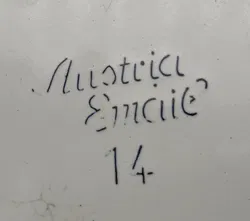 Austria
Email
14